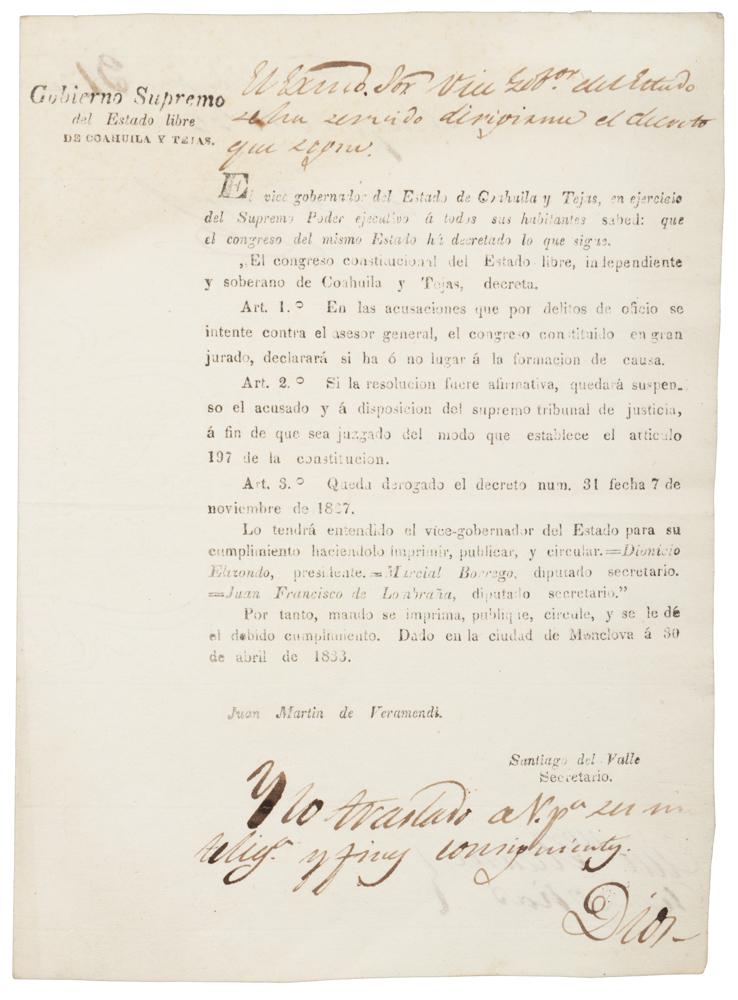 Gobierno Supremo
del Estado libre
DE COAHUILA Y TEJAS.
El Exmo. Sor Vice Gobor. del Estado
se ha servido dirigirme el decreto
que sigue.
El vice gobernador del Estado de Coahuila y Tejas, en ejercicio
del Supremo Poder ejecutivo á todos sus habitantes sabed: que
el congreso del mismo Estado há decretado lo que sigue.
„El congreso constitucional del Estado libre, independiente
y soberano de Coahuila y Tejas, decreta.
Art. 1.º En las acusaciones que por delitos de oficio se
intente contra el asesor general, el congreso constituido en gran
jurado, declarará si ha ó no lugar á la formacion de causa.
Art. 2.º Si la resolucion fuere afirmativa, quedará suspen-
so el acusado y á disposicion del supremo tribunal de justicia,
á fin de que sea juzgado del modo que establece el articulo
197 de la constitucion.
Art. 3.º Queda derogado el decreto num. 31 fecha 7 de
noviembre de 1827.
Lo tendrá entendido el vice-gobernador del Estado para su
cumplimiento haciendolo imprimir, publicar, y circular.=Dionicio
Elizondo, presidente.=Marcial Borrego, diputado secretario.
=Juan Francisco de Lombraña, diputado secretario.”
Por tanto, mando se imprima, publique, circule, y se le dé
el debido cumplimiento. Dado en la ciudad de Monclova á 30
de abril de 1833.
Juan Martin de Veramendi.
Santiago del Valle
Secretario.
Y lo traslado a V. pa su in
teliga. y fines consiguientes.
Dios